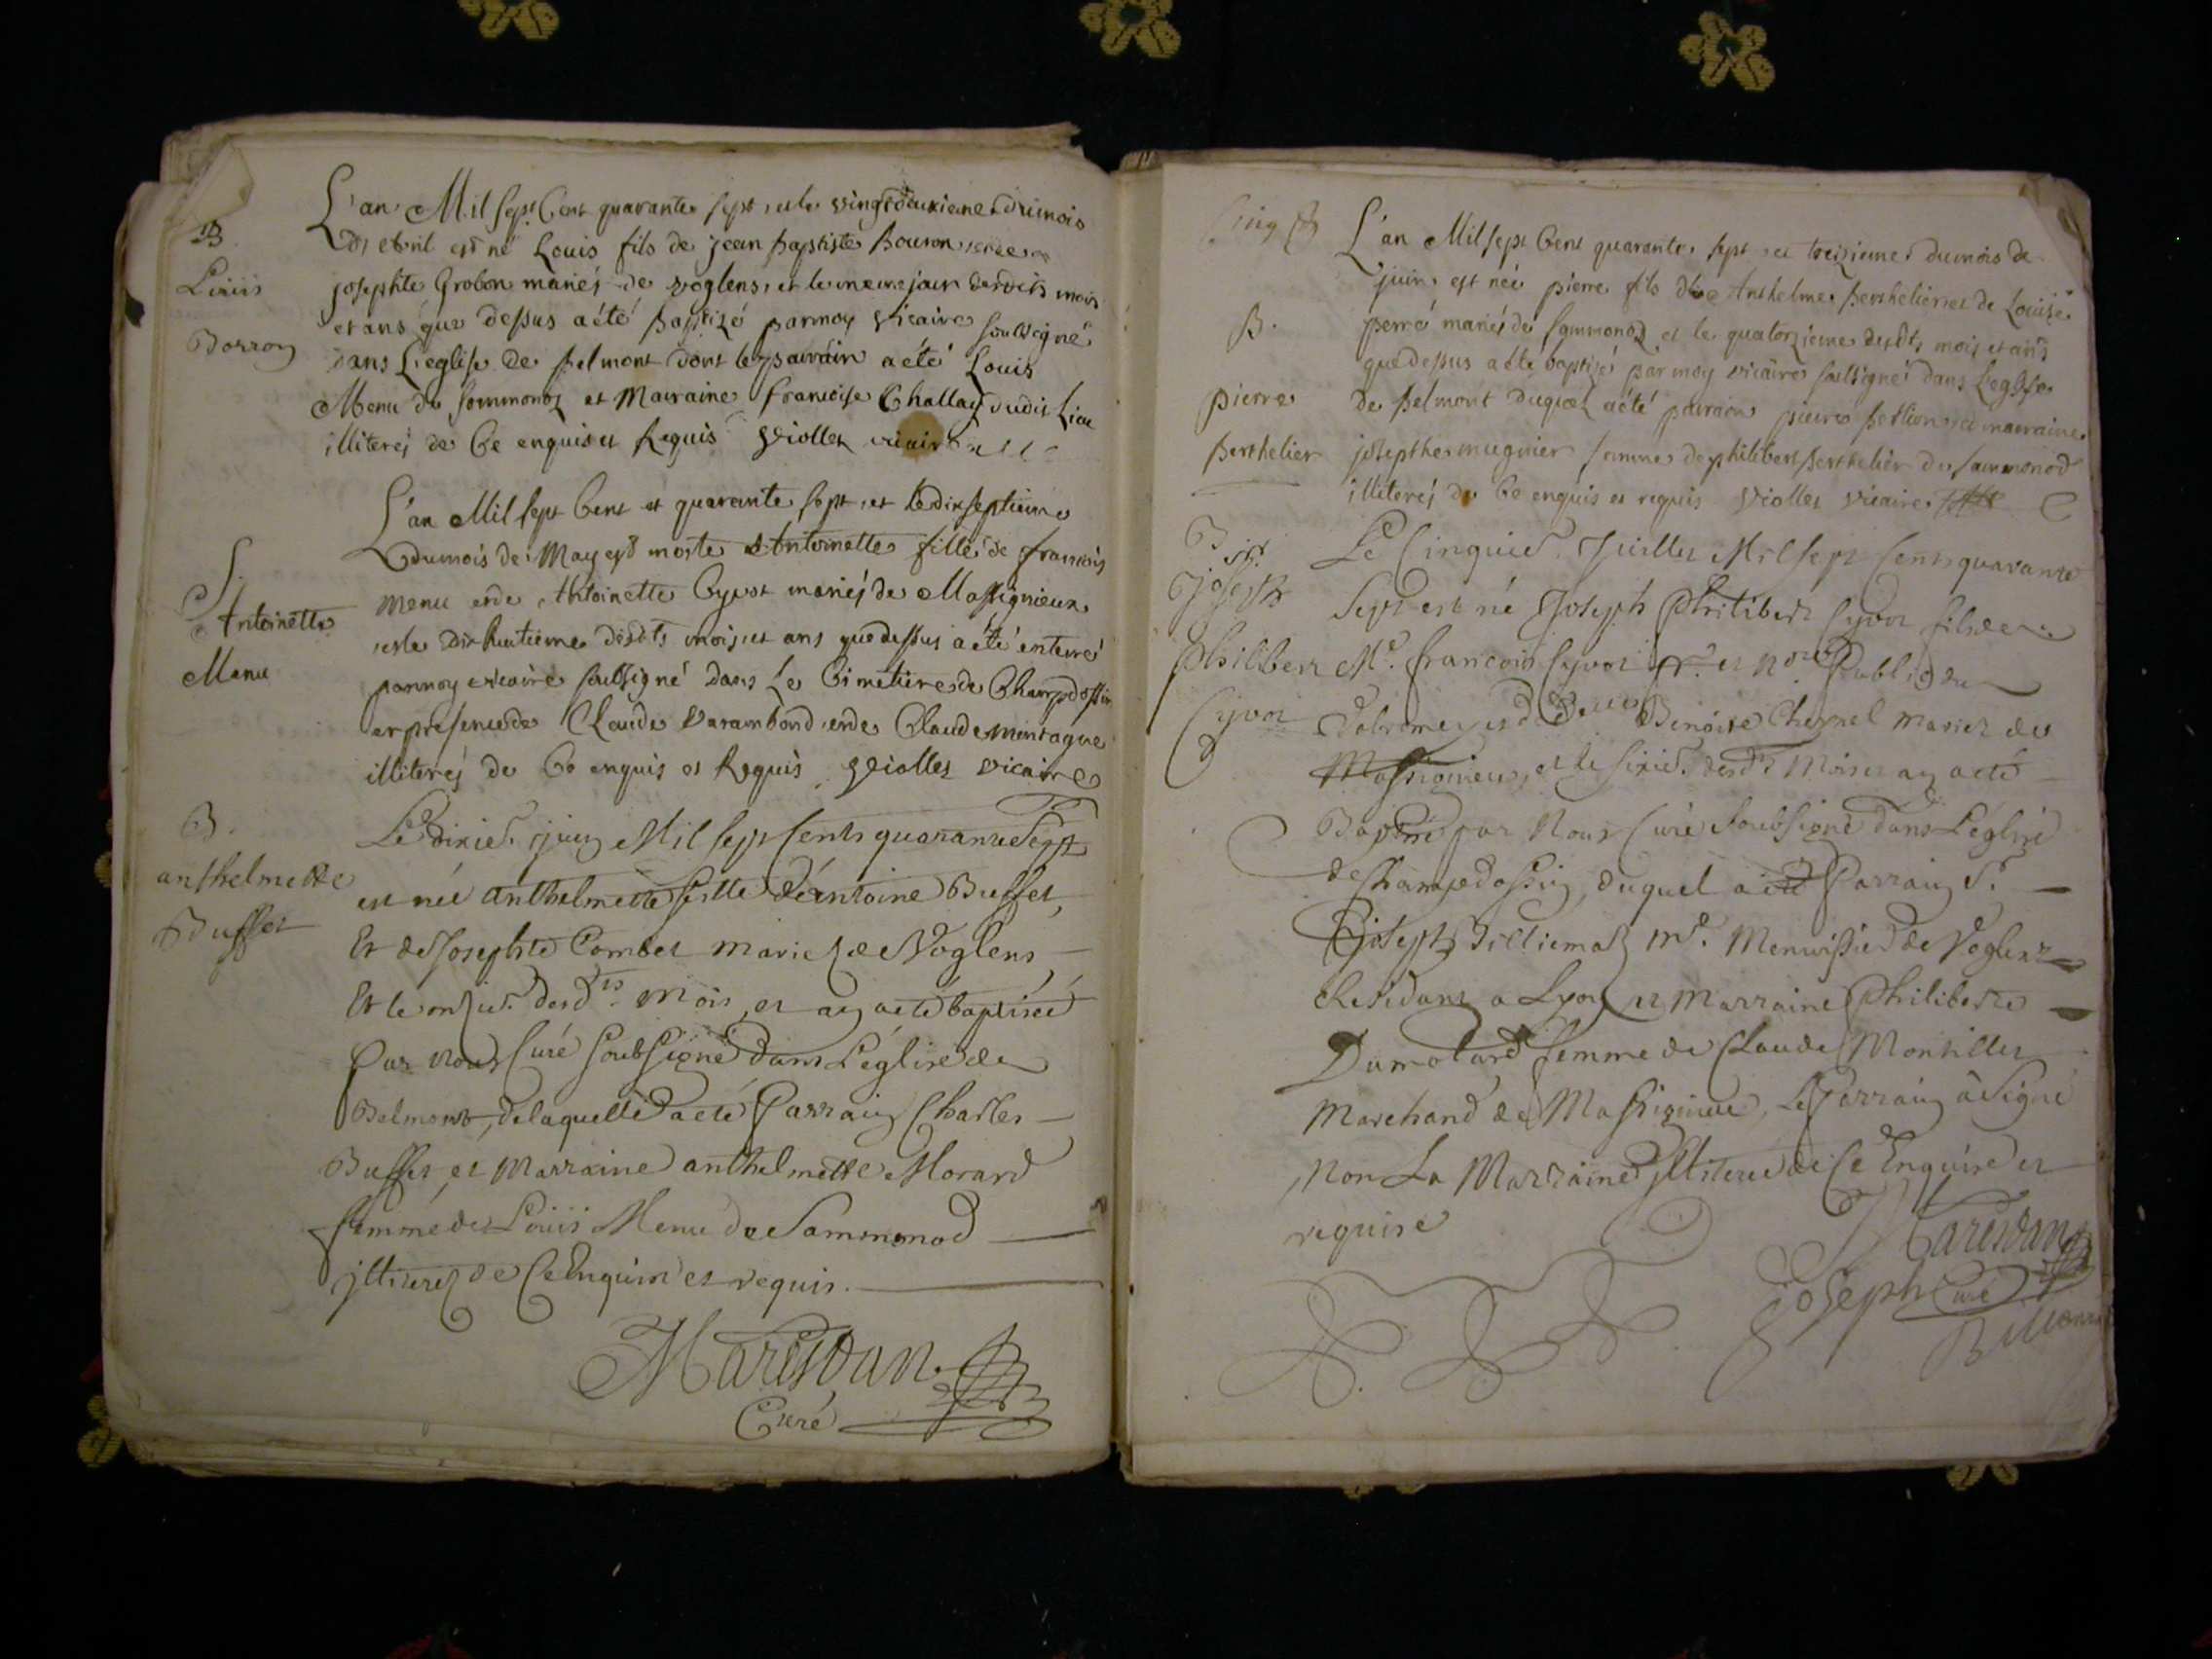 B.
Louis
Borron
L'an Mil sept Cent quarante sept et le vingtdeuxieme du mois
d'avril est né Louis fils de jean baptiste bouron et de
josephte Grobon mariés de voglens, et le meme jour desdits mois
et ans que dessus a été baptizé par moy vicaire soussigné
dans L'eglise de belmont dont le parrain a été Louis
Menu de sammonoz et Marraine francoise Challay dudit Lieu
illiteréj de Ce enquis et Requis Violles vicaire
S.
Antoinette
Menu
L'an Mil sept Cent et quarante sept, et le dixseptieme
du mois de May est morte Antoinette fille de francois
Menu et de Antoinette Cyvot mariés de Massignieux
et le dixhuitieme desdts mois et ans que dessus a été enterré
par moy vicaire soussigné dans Le Cimetiere de Champdossin
en presence de Claude varambond et de Claude montagne
illiteréj de Ce enquis et Requis Violles vicaire
B.
anthelmette
Buffet
Le dixie. juin Mil sept Cents quarante Sept
est née anthelmette fille de antoine Buffet,
Et de Josephte Combet mariez de Voglens
Et le onzie. desdts. mois, et an a eté baptisée
par nous Curé Soubsigné dans L'église de
Belmont, de laquelle a eté Parrain Charles
Buffet, et Marraine anthelmette Morard
femme de Louis Menu de Sammonod
jlliterez de Ce Enquis et requis.
Maresdan
Curé
B.
pierre
berthelier
L'an Mil sept Cent quarante sept et treizieme du mois de
juin est née pierre fils de Anthelme berthelier et de Louise
perré mariés de sammonod et le quatorzieme desdts mois et ans
que dessus a été baptizé par moy vicaire soussigné dans L'eglise
de belmont duquel a été parrain pierre et marraine
josepthe mugnier femme de philibert berthelier de sammonod
illiteréj de Ce enquis et requis Violles vicaire
B
Joseph
Philibert
Cyvot
Le Cinquie. Juillet Mil sept Cents quarante
Sept est né Joseph Philibert Cyvot fils de
Me. francois Cyvot et Nore Public du
et de Benoite Chesnel mariez de
Massignieu, et le sixie. desdts Mois et an a eté
Baptisé par Nous Curé Soubsigné dans L'église
de Champdossin, duquel a eté Parrain Sr.
Joseph Billiemaz Md. Menuissier de Voglens
Residant a Lyon et Marraine Philiberte
Dumolard femme de Claude Montillet
Marchand de Massignieu, Le Parrain à Signé
Non La Marraine jlliterée de Ce Enquise et
requise
Maresdan
Curé
Joseph